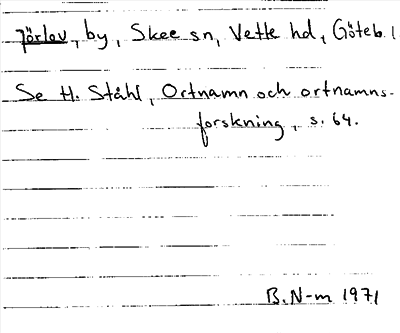 Jörlov, by, Skee sn, Vette hd, Göteb. l
Se H. Ståhl, Ortnamn och ortnamns-
forskning, s. 64.
B. N-m 1971